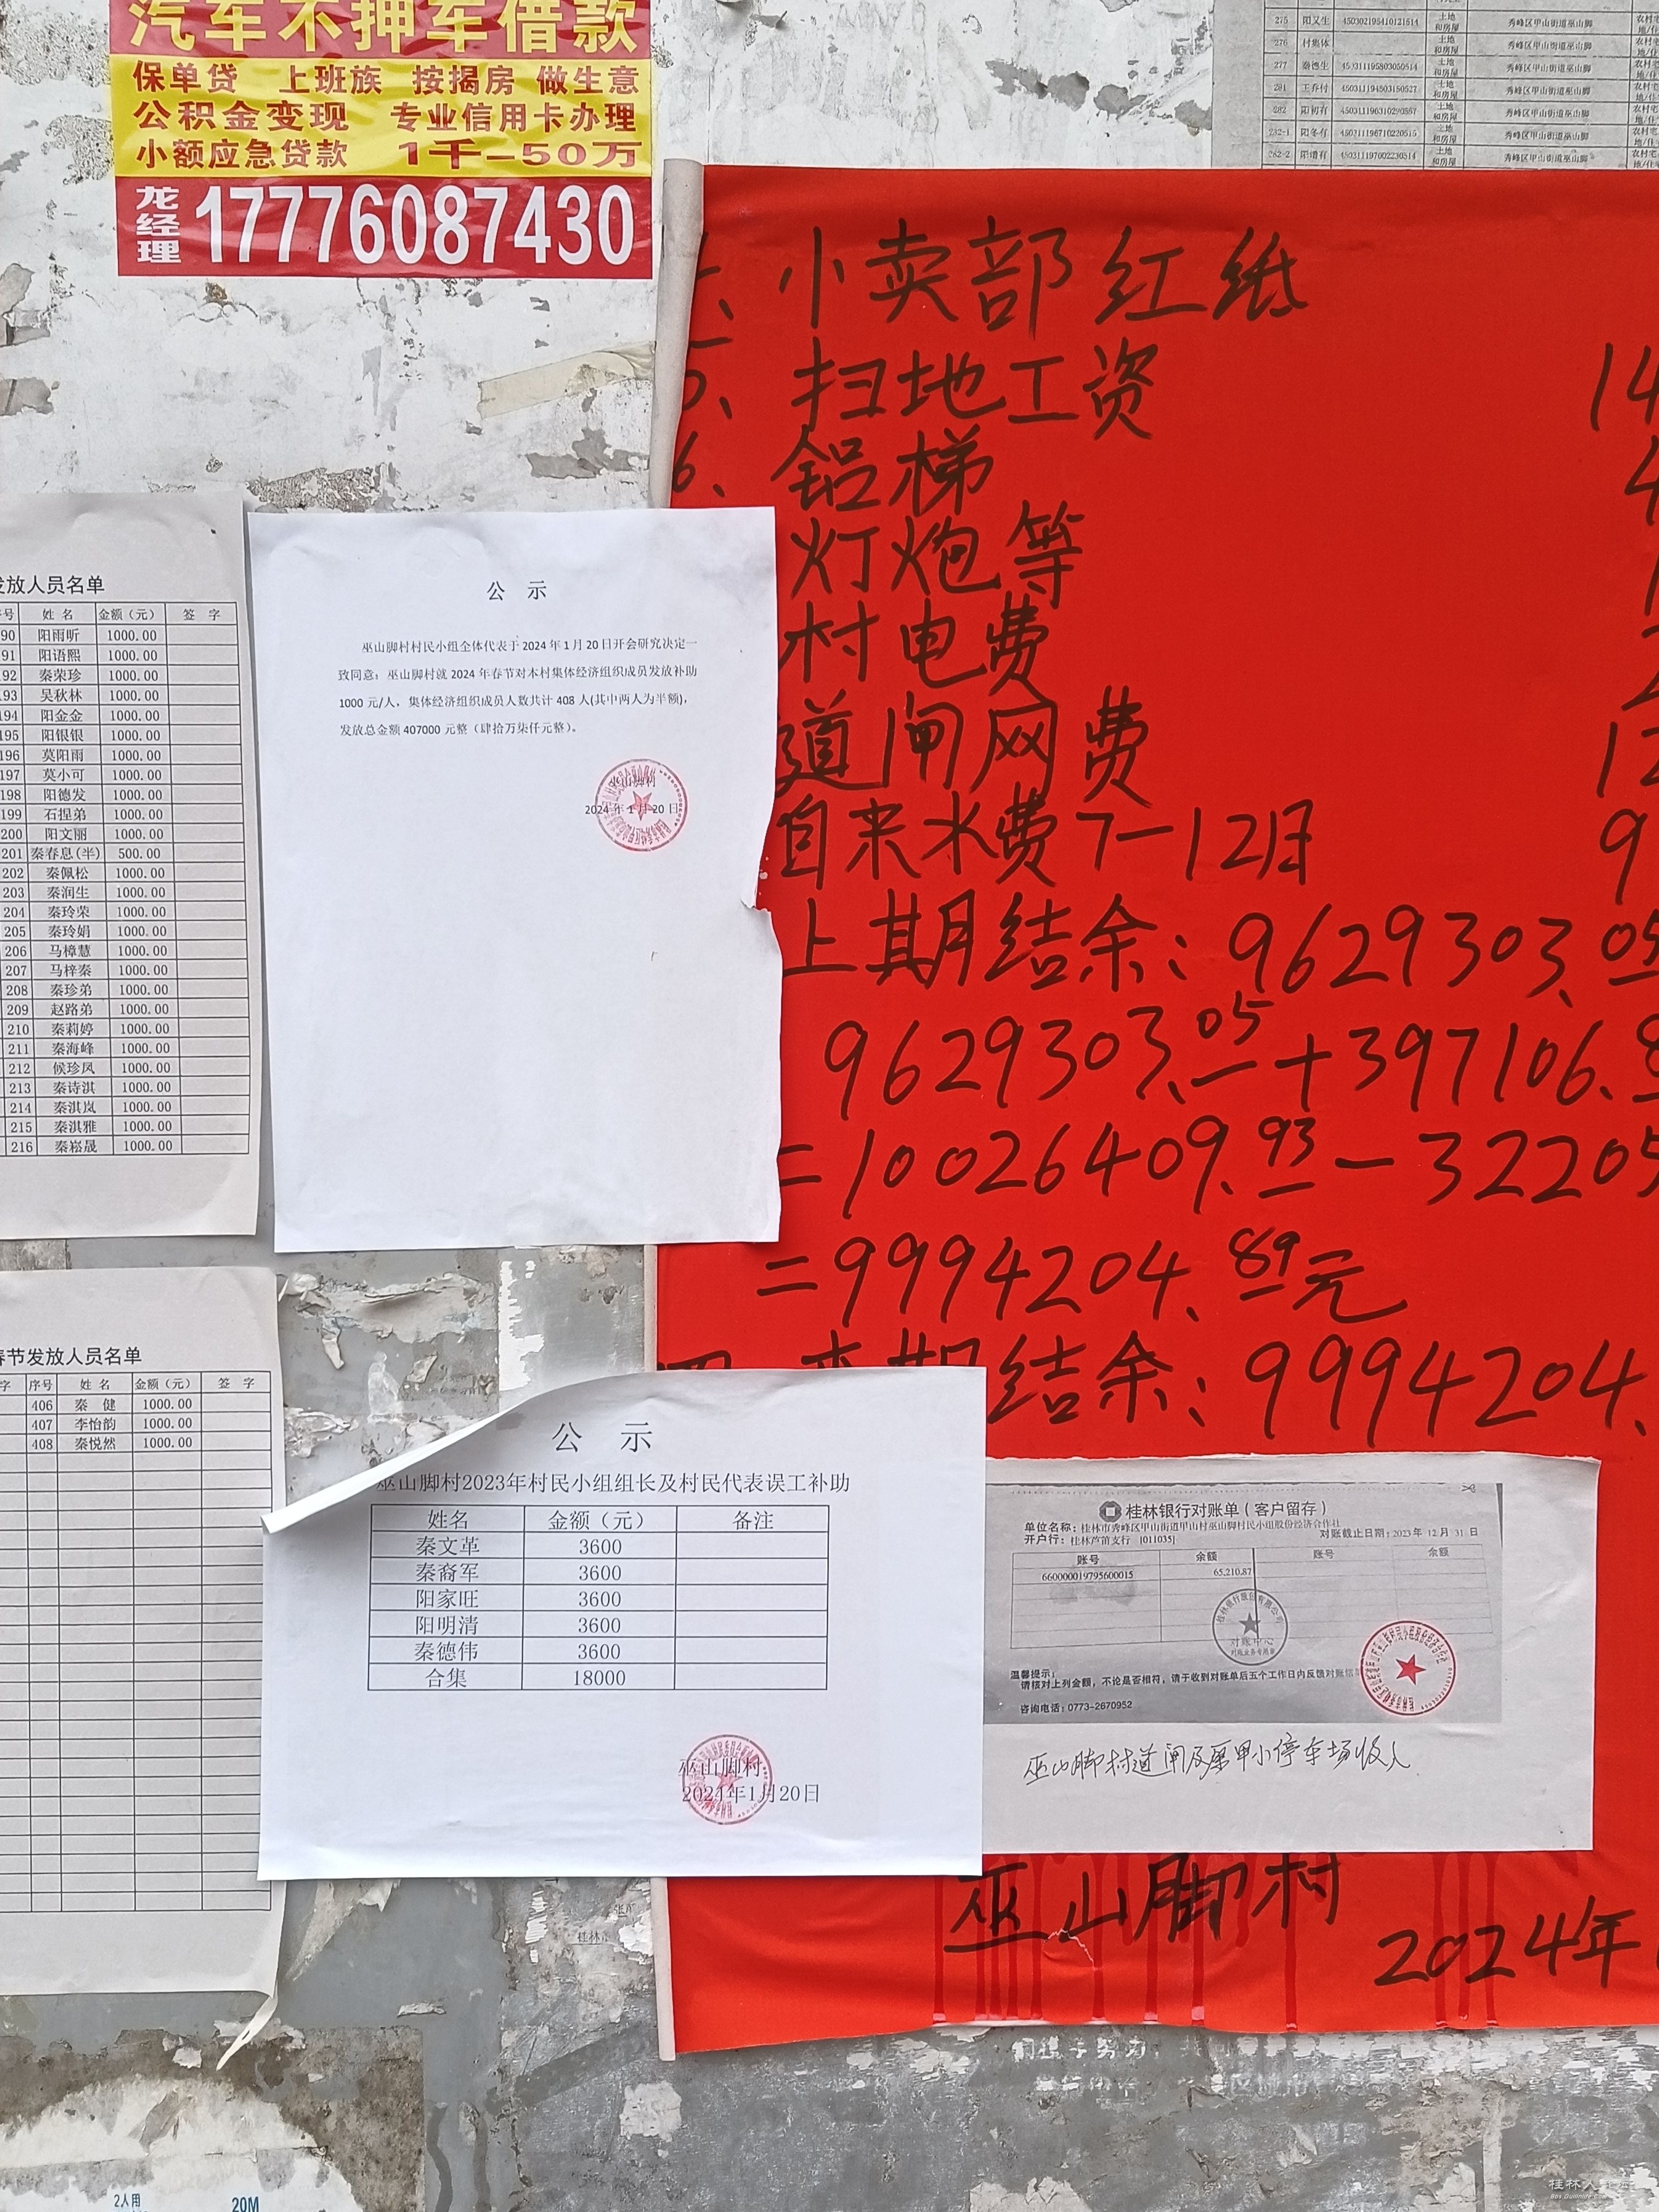 汽车不押车借款
保单贷 上班族 按揭房 做生意
公积金变现 专业信用卡办理
小额应急贷款 1千-50万
龙经理 17776087430
275 阳又生 450302195410121514 土地和房屋 秀峰区甲山街道巫山脚
276 村集体 土地和房屋 秀峰区甲山街道巫山脚
277 秦德生 450311195803050514 土地和房屋 秀峰区甲山街道巫山脚
281 王乔村 450311194503150527 土地和房屋 秀峰区甲山街道巫山脚
282 阳初有 土地和房屋 秀峰区甲山街道巫山脚
282-1 阳冬有 450311196710220515 土地和房屋 秀峰区甲山街道巫山脚
282-2 阳增有 450311197002230514 土地和房屋 秀峰区甲山街道巫山脚
小卖部红纸
扫地工资 14
6、铝梯 4
灯炮等
村电费
道闸网费 12
自来水费7-12月 9
上期结余:9629303.05
9629303.05+397106.8
=10026409.93-32205
=9994204.89元
结余:9994204.
巫山脚村
2024年
发放人员名单
号 姓 名 金额(元) 签 字
90 阳雨昕 1000.00
91 阳语熙 1000.00
92 秦荣珍 1000.00
93 吴秋林 1000.00
194 阳金金 1000.00
195 阳银银 1000.00
196 莫阳雨 1000.00
197 莫小可 1000.00
198 阳德发 1000.00
199 石捏弟 1000.00
200 阳文丽 1000.00
201 秦春息(半) 500.00
202 秦佩松 1000.00
203 秦润生 1000.00
204 秦玲荣 1000.00
205 秦玲娟 1000.00
206 马樟慧 1000.00
207 马梓秦 1000.00
208 秦珍弟 1000.00
209 赵路弟 1000.00
210 秦莉婷 1000.00
211 秦海峰 1000.00
212 候珍凤 1000.00
213 秦诗淇 1000.00
214 秦淇岚 1000.00
215 秦淇雅 1000.00
216 秦崧晟 1000.00
公 示
巫山脚村村民小组全体代表于2024年1月20日开会研究决定一
致同意:巫山脚村就2024年春节对本村集体经济组织成员发放补助
1000元/人,集体经济组织成员人数共计408人(其中两人为半额),
发放总金额407000元整(肆拾万柒仟元整)。
巫山脚村
2024年1月20日
春节发放人员名单
字 序号 姓 名 金额(元) 签 字
406 秦 健 1000.00
407 李怡韵 1000.00
408 秦悦然 1000.00
公 示
巫山脚村2023年村民小组组长及村民代表误工补助
姓名 金额(元) 备注
秦文革 3600
秦裔军 3600
阳家旺 3600
阳明清 3600
秦德伟 3600
合集 18000
巫山脚村
2024年1月20日
桂林银行对账单(客户留存)
单位名称:桂林市秀峰区甲山街道甲山村巫山脚村民小组股份经济合作社
开户行:桂林芦笛支行 [011035] 对账截止日期:2023年12月31日
账号 余额 账号 余额
660000019795600015 65,210.87
对账中心
对账业务专用章
温馨提示:
请核对上列金额,不论是否相符,请于收到对账单后五个工作日内反馈对账信
咨询电话:0773-2670952
巫山脚村道闸及原甲小停车场收入
2人用 20M
桂林人